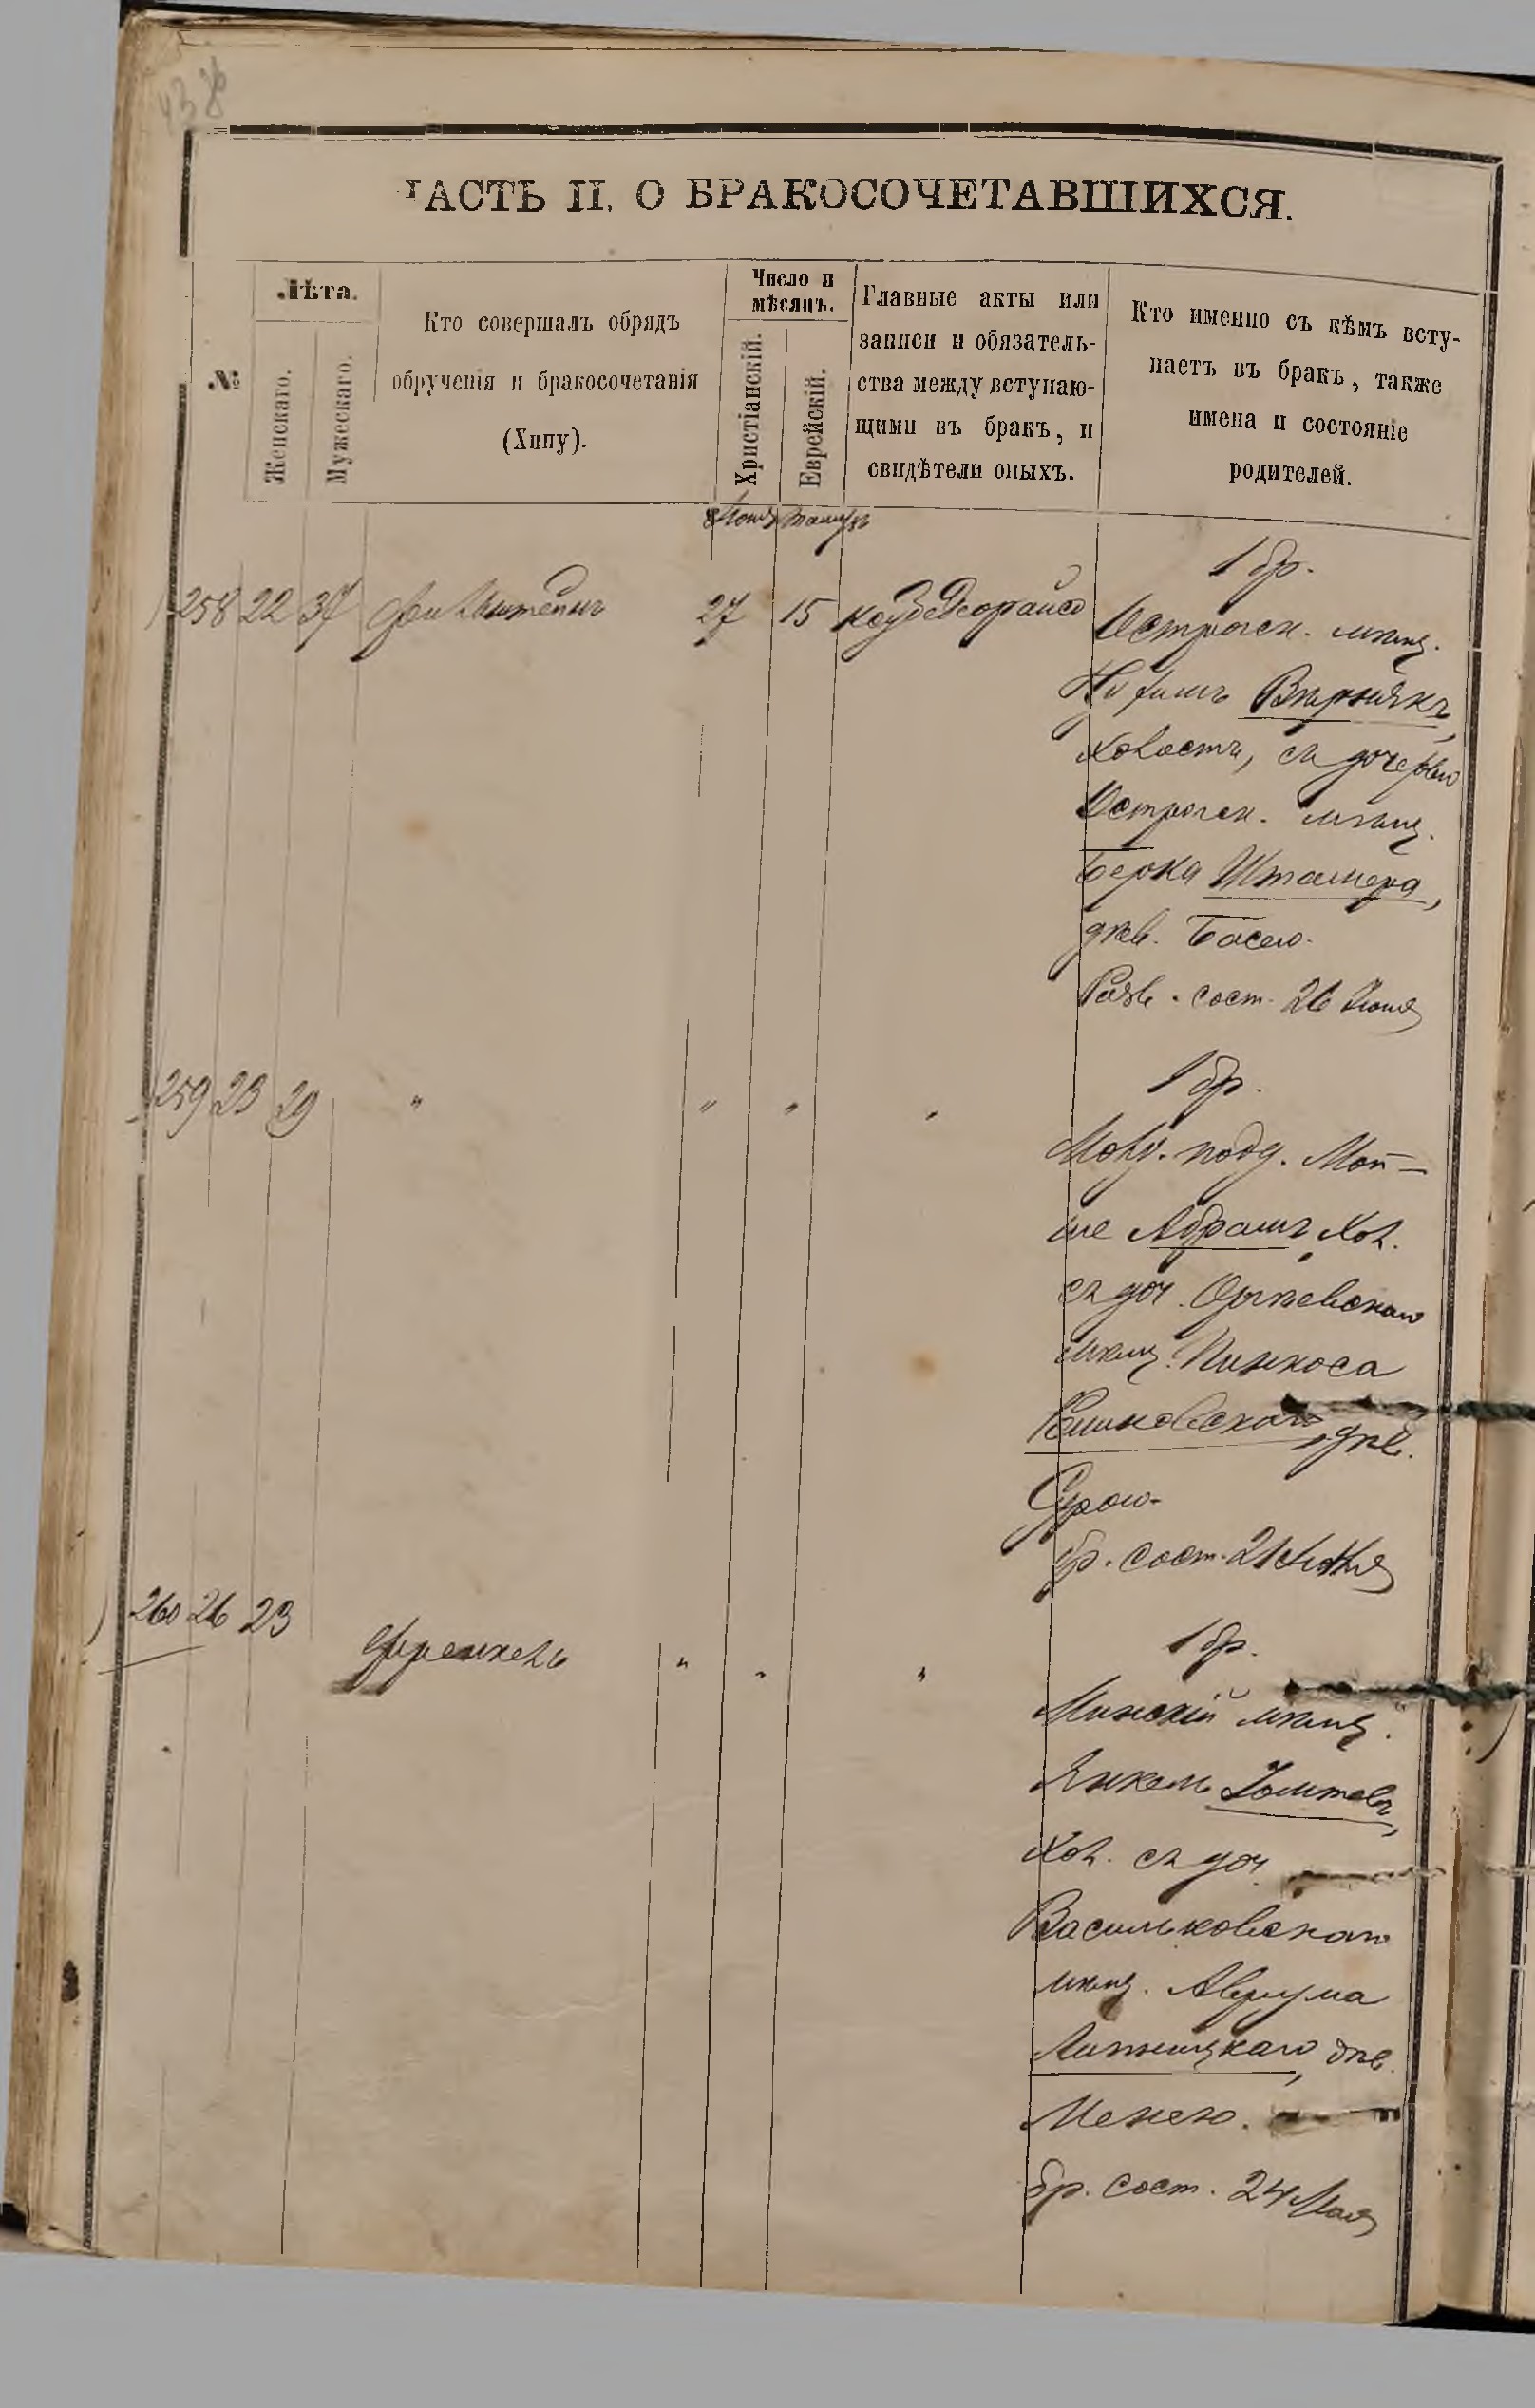 438
ЧАСТЬ II. О БРАКОСОЧЕТАВШИХСЯ.
№
Лѣта.
Женскаго.
Мужескаго.
Кто совершалъ обрядъ
обрученія и бракосочетанія
(Хипу).
Число и
мѣсяцъ.
Христіанскій.
Еврейскій.
Главные акты или
записи и обязатель-
ства между вступаю-
щими въ бракъ, и
свидѣтели оныхъ.
Кто именно съ кѣмъ всту-
паетъ въ бракъ, также
имена и состояніе
родителей.
Іюня
258 22 37
27 15
1 бр.
Острогск. мѣщ.
холостъ, съ дочерью
Острогск. мѣщ.
Берка Штамера,
дѣв. Басею.
сост. 26 Іюня
259 23 29 " " " "
1 бр.
подд. Мой-
ше Абрамъ, хол.
съ доч.
мѣщ. Пинкоса
дѣв.
Сурою.
бр. сост. 21
260 26 23 Френкель " " "
1 бр.
Минскій мѣщ.
Янкель
хол. съ доч.
Васильковскаго
мѣщ. Аврума
Липницкаго, дѣв.
Менею.
бр. сост. 24 Мая